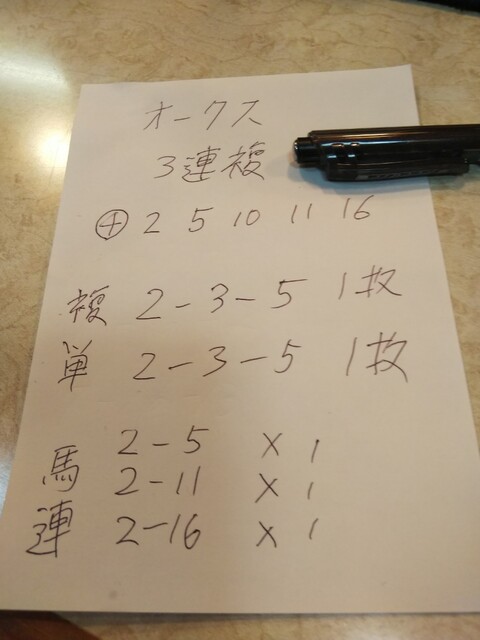 オークス
3連複
⊕ 2 5 10 11 16
複 2-3-5 1枚
単 2-3-5 1枚
馬連
2-5 × 1
2-11 × 1
2-16 × 1